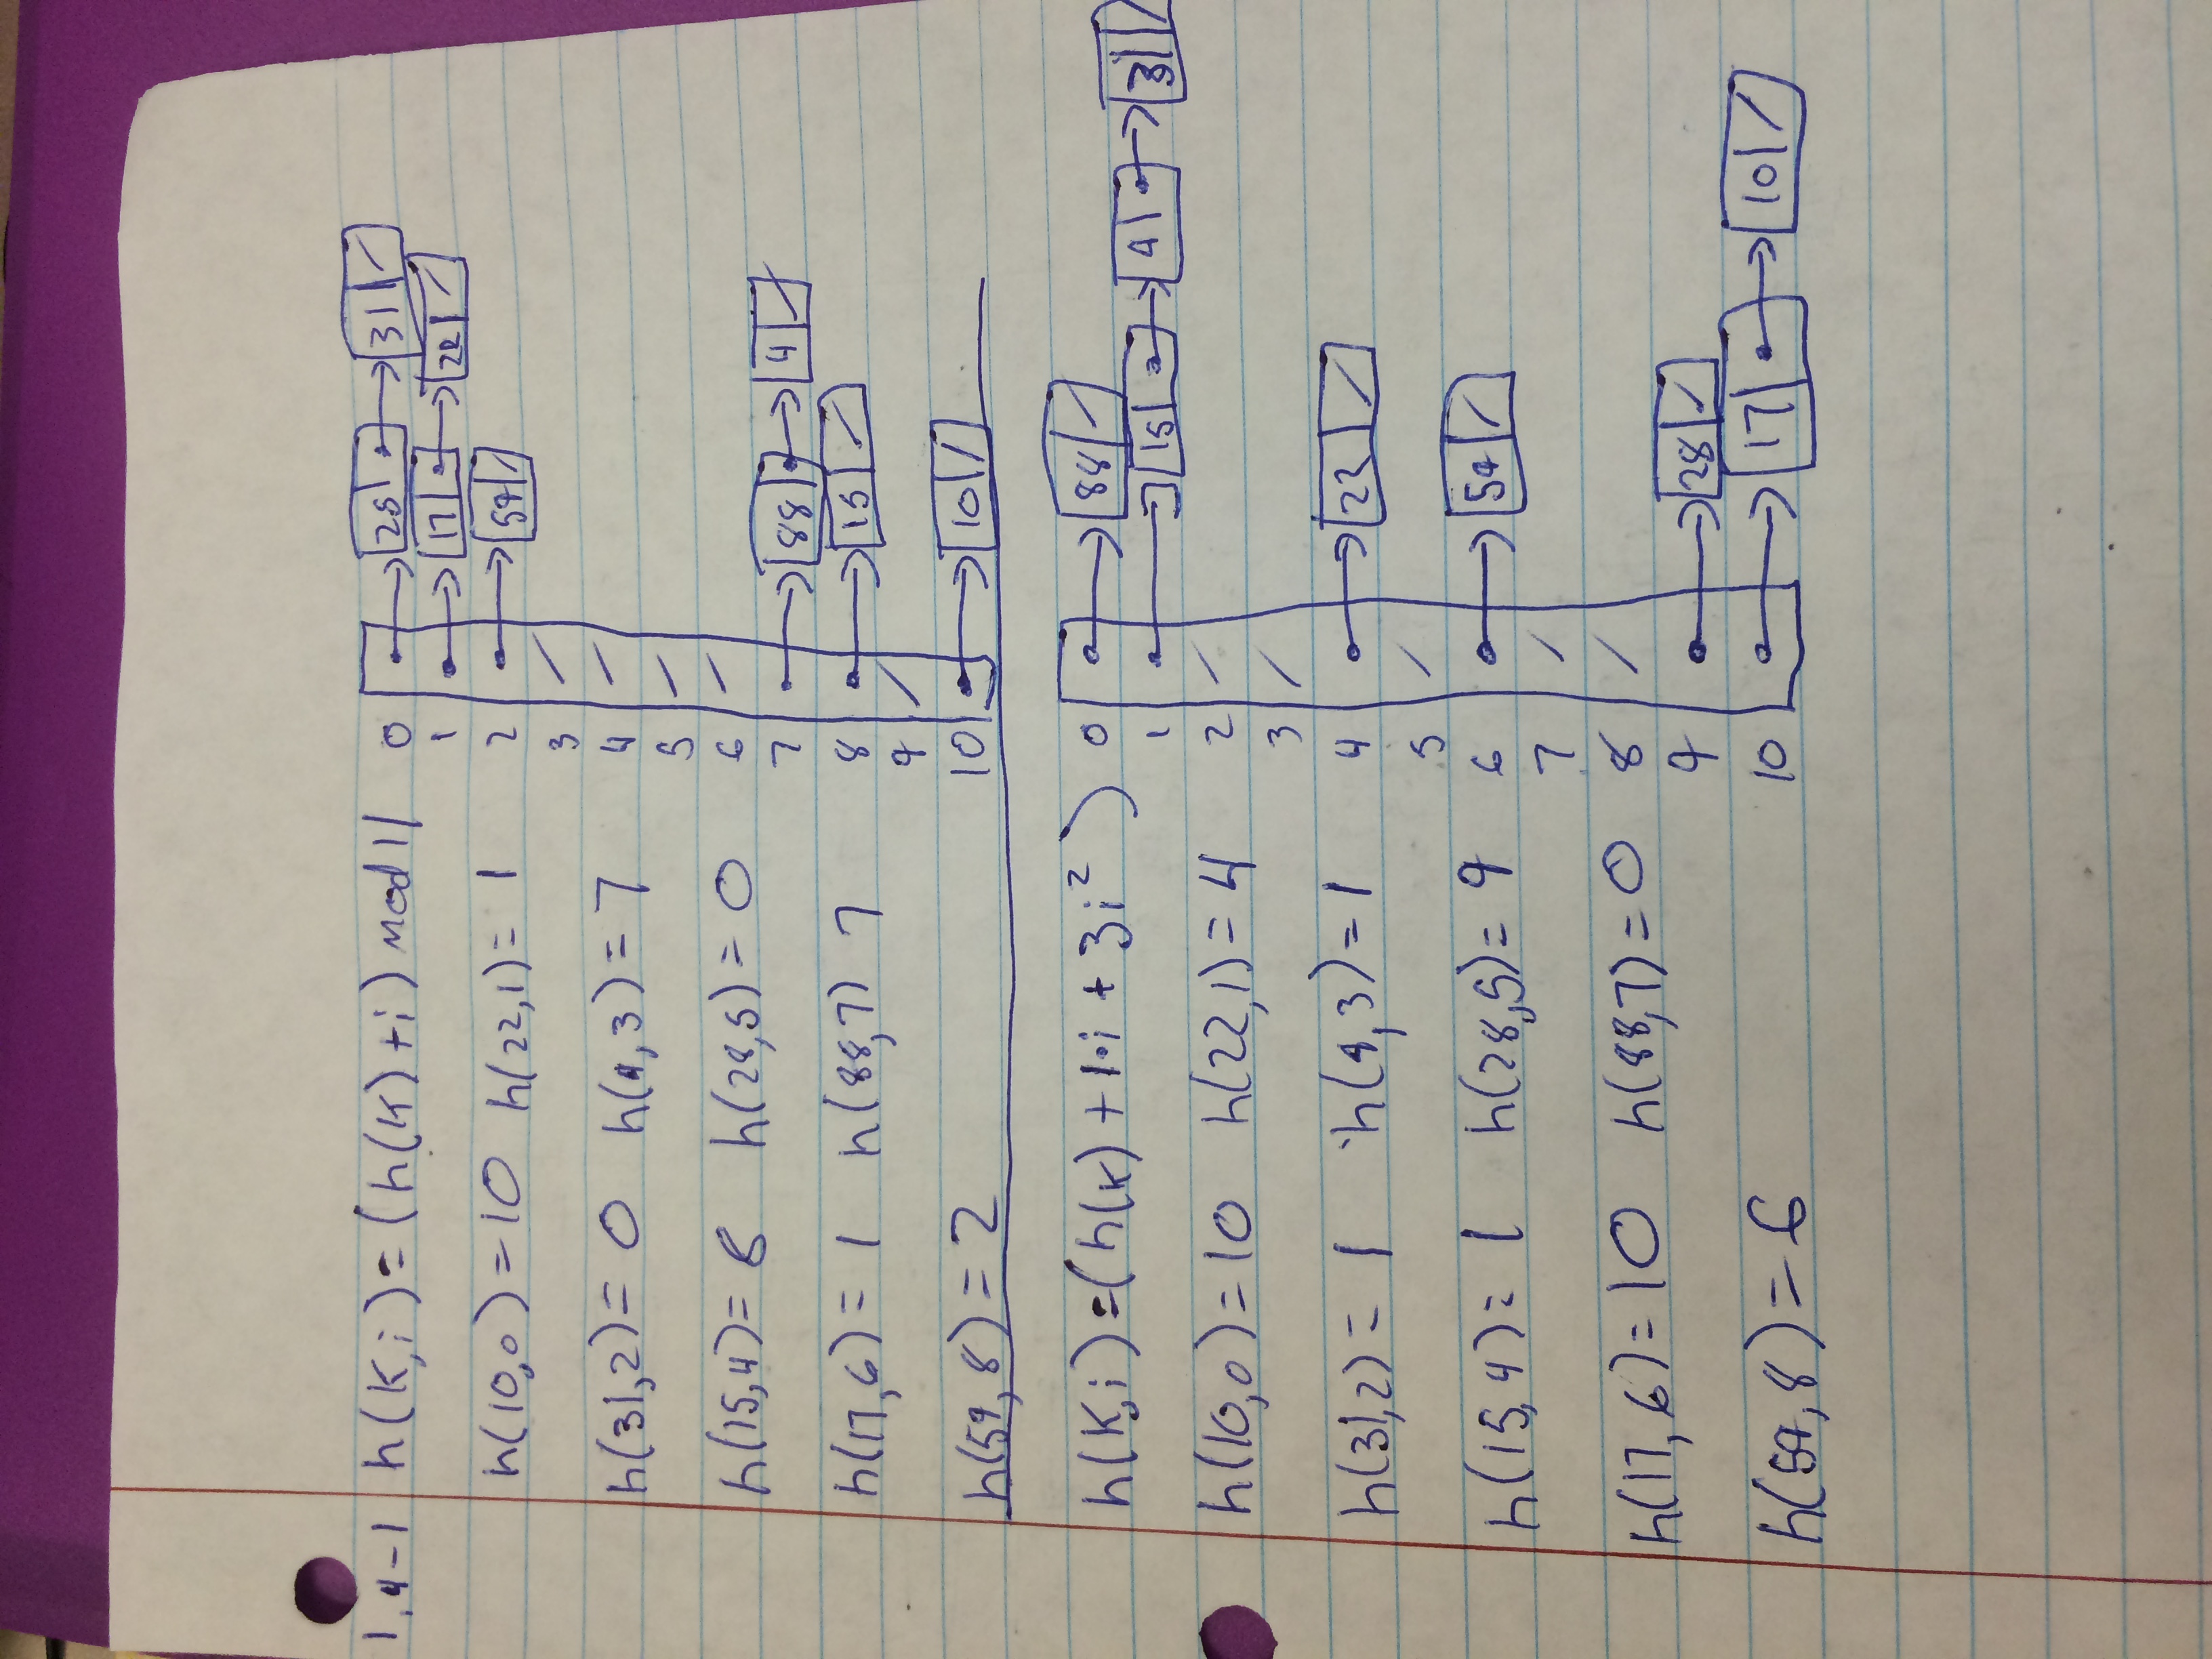 1.4-1 h(k,i)=(h(k)+i) mod 11
h(10,0)=10 h(22,1)=1
h(31,2)=0 h(4,3)=7
h(15,4)=8 h(28,5)=0
h(17,6)=1 h(88,7) 7
h(59,8)=2
0 28 31
1 17 22
2 59
3
4
5
6
7 88 4
8 15
9
10 10
h(k,i)=(h(k)+1·i+3i²)
h(10,0)=10 h(22,1)=4
h(31,2)=1 h(4,3)=1
h(15,4)=1 h(28,5)=9
h(17,6)=10 h(88,7)=0
h(59,8)=6
0 88
1 15 4 31
2
3
4 22
5
6 59
7
8
9 28
10 17 10